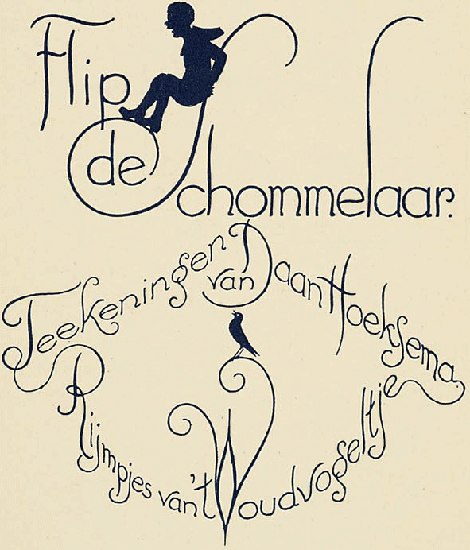 Flip
de Schommelaar.
Teekeningen van Daan Hoeksema.
Rijmpjes van 't Woudvogeltje